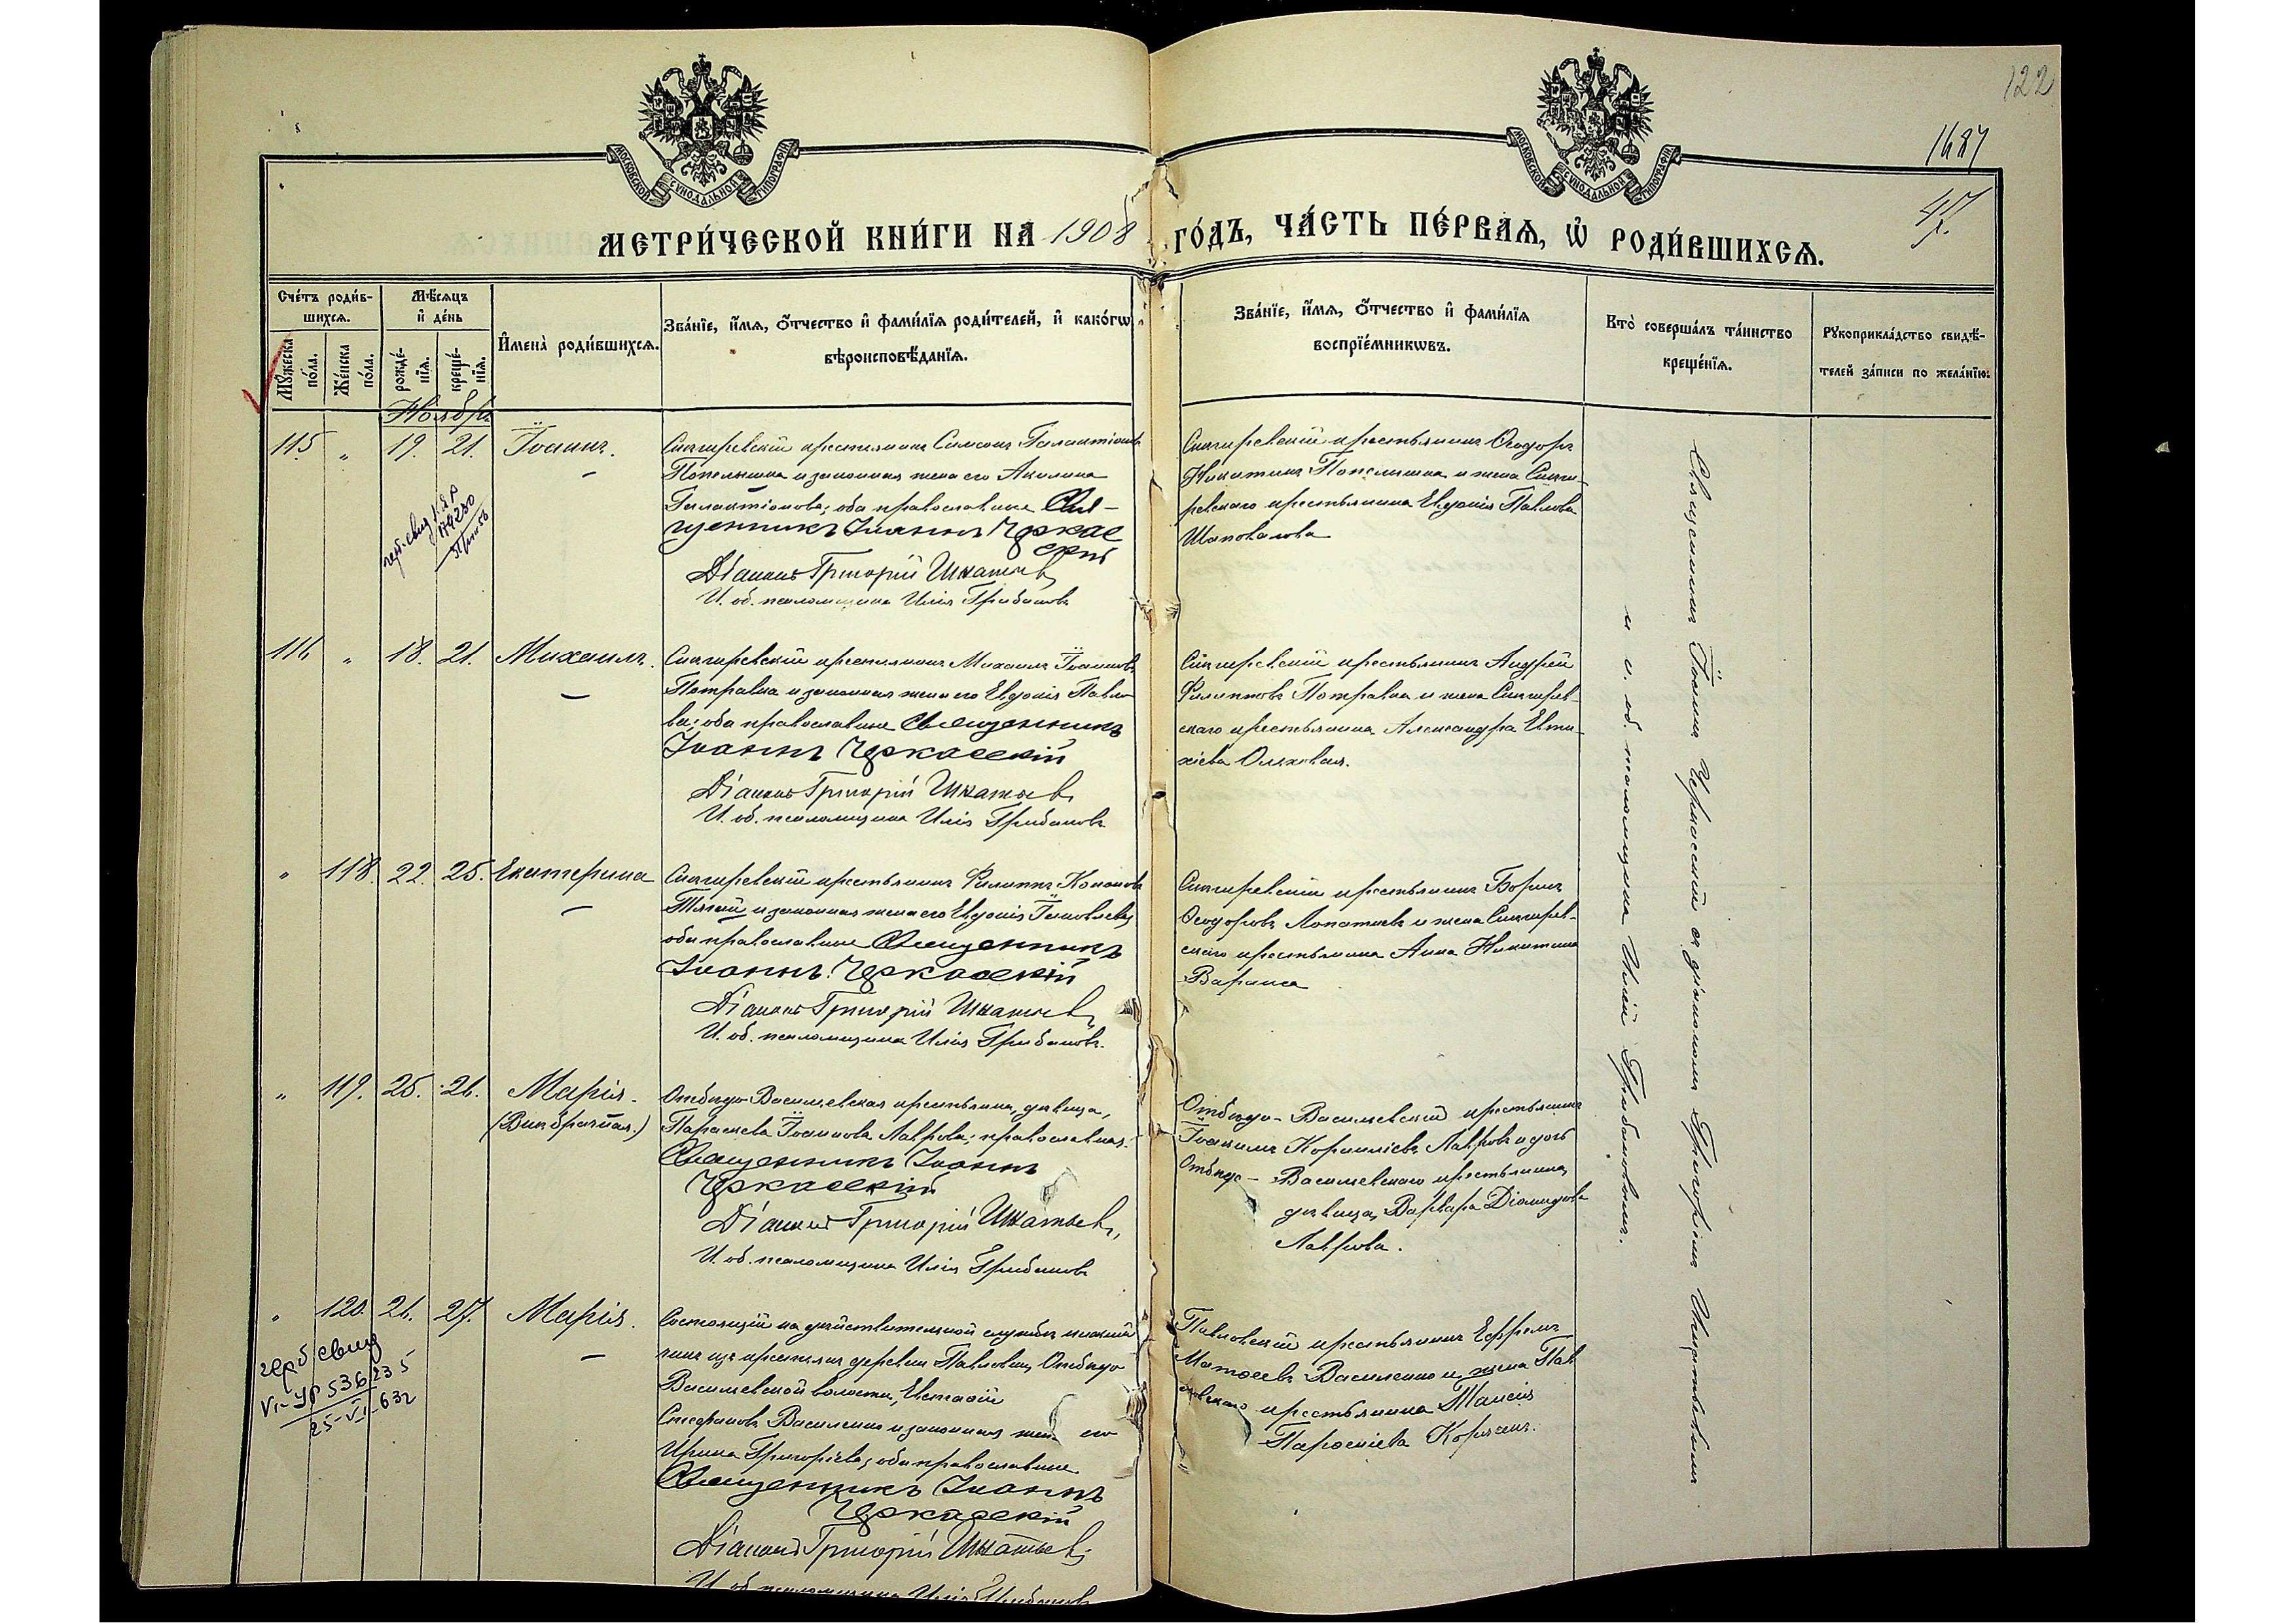 122
1687
47.
МОСКОВСКОЙ СѴНОДАЛЬНОЙ ТИПОГРАФІИ
МОСКОВСКОЙ СѴНОДАЛЬНОЙ ТИПОГРАФІИ
МЕТРИ́ЧЕСКОЙ КНИ́ГИ НА 1908 ГО́ДЪ, ЧА́СТЬ ПЕ́РВАѦ, Ѡ҆ РОДИ́ВШИХСѦ.
Сче́тъ роди́в-
шихсѧ.
Мꙋ́жеска по́ла.
Же́нска по́ла.
Мѣ́сѧцъ
и҆ де́нь
рожде́-нїѧ.
креще́-нїѧ.
И҆мена̀ роди́вшихсѧ.
Зва́нїе, и҆́мѧ, ѻ҆́тчество и҆ фами́лїѧ роди́телей, и҆ како́гѡ
вѣроисповѣ́данїѧ.
Зва́нїе, и҆́мѧ, ѻ҆́тчество и҆ фами́лїѧ
воспрїе́мникѡвъ.
Кто̀ соверша́лъ та́инство
креще́нїѧ.
Рꙋкоприкла́дство свидѣ́-
телей за́писи по жела́нїю.
Ноябрь
115. " 19. 21. Іоаннъ.
Снагиревскій крестьянинъ Самсонъ Галактіоновъ
Попелышка и законная жена его Акилина
Галактіонова; оба православные Свя-
щенникъ Іоаннъ Черкас
скій
Діаконъ Григорій Игнатьевъ
И. об. псаломщика Илія Грибановъ
Снагиревскій крестьянинъ Ѳеодоръ
Никитинъ Попелышка и жена Снаги-
ревскаго крестьянина Евдокія Павлова
Шаповалова
116 " 18. 21. Михаилъ.
Снагиревскій крестьянинъ Михаилъ Іоанновъ
Потравка и законная жена его Евдокія Павло
ва; оба православные Священникъ
Іоаннъ Черкасскій
Діаконъ Григорій Игнатьевъ
И. об. псаломщика Илія Грибановъ
Снагиревскій крестьянинъ Андрей
Филипповъ Потравка и жена Снагирев-
скаго крестьянина Александра Евти-
хіева Оляховая.
" 118. 22. 25. Екатерина
Снагиревскій крестьянинъ Филиппъ Кононовъ
Тягай и законная жена его Евдокія Іаковлева,
оба православные Священникъ
Іоаннъ Черкасскій
Діаконъ Григорій Игнатьевъ
И. об. псаломщика Илія Грибановъ.
Снагиревскій крестьянинъ Борисъ
Ѳеодоровъ Лопатневъ и жена Снагирев-
скаго крестьянина Анна Никитина
Варакса
" 119. 25. 26. Марія.
(Внѣбрачная.)
Отбѣдо-Васильевская крестьянка, дѣвица,
Параскева Іоаннова Лаврова; православная.
Священникъ Іоаннъ
Черкасскій
Діаконъ Григорій Игнатьевъ,
И. об. псаломщика Илія Грибановъ
Отбѣдо-Васильевскій крестьянинъ
Іоакимъ Корниліевъ Лавровъ и дочь
Отбѣдо-Васильевскаго крестьянина,
дѣвица, Варвара Діомидова
Лаврова.
" 120. 26. 27. Марія.
Состоящій на дѣйствительной службѣ нижній
чинъ изъ крестьянъ деревни Павловки, Отбѣдо
Васильевской волости, Евстафій
Стефановъ Василенко и законная жена его
Ирина Григоріева; оба православные
Священникъ Іоаннъ
Черкасскій
Діаконъ Григорій Игнатьевъ
И. об. псаломщика Илія Грибановъ
Павловскій крестьянинъ Ефремъ
Матѳеевъ Василенко и жена Пав
ловскаго крестьянина Таисія
Корсунъ.
герб свид
VI-УР 536235
25-VI-632
Священникъ Іоаннъ Черкасскій съ діакономъ Григоріемъ Игнатьевымъ
и и. об. псаломщика Иліей Грибановымъ.